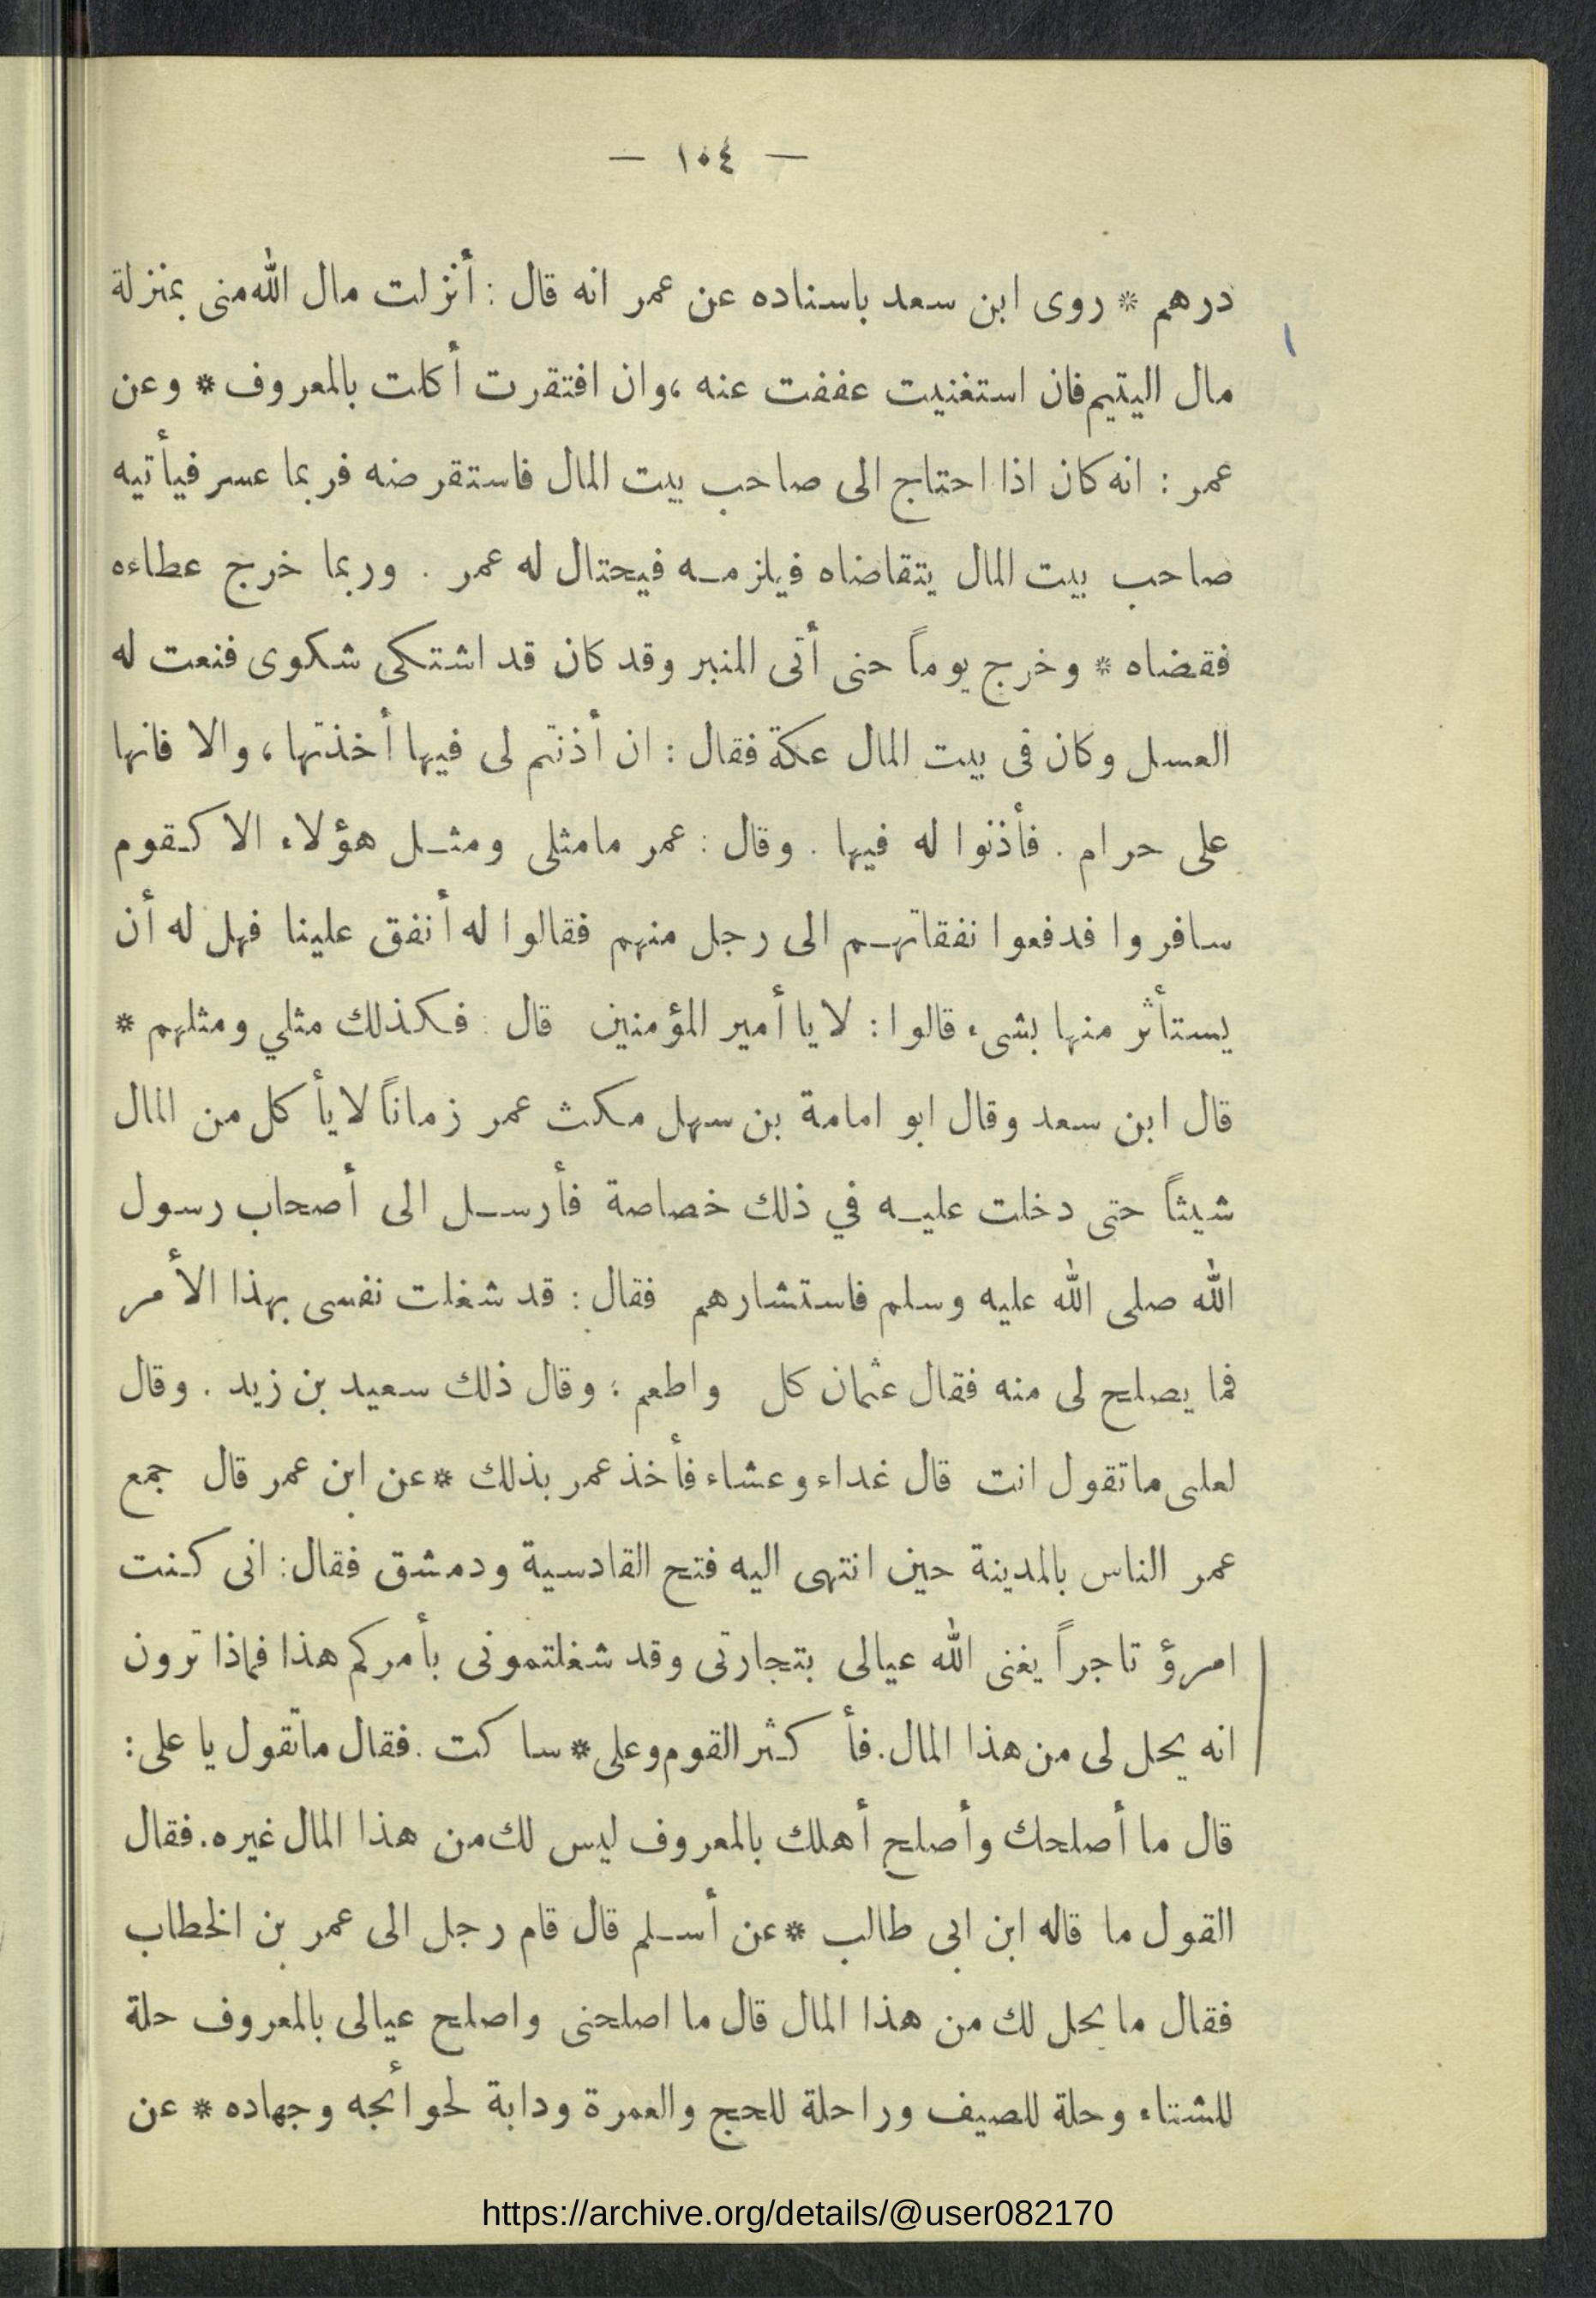 — ١٠٤ —
درهم * روى ابن سعد باسناده عن عمر انه قال : أنزلت مال الله منى بمنزلة
مال اليتيم فان استغنيت عففت عنه ، وان افتقرت أكلت بالمعروف * وعن
عمر : انه كان اذا احتاج الى صاحب بيت المال فاستقرضه فربما عسر فيأتيه
صاحب بيت المال يتقاضاه فيلزمه فيحتال له عمر . وربما خرج عطاءه
فقضاه * وخرج يوماً حتى أتى المنبر وقد كان قد اشتكى شكوى فنعت له
العسل وكان فى بيت المال عكة فقال : ان أذنتم لى فيها أخذتها ، والا فانها
على حرام . فأذنوا له فيها . وقال : عمر مامثلى ومثل هؤلاء الا كقوم
سافروا فدفعوا نفقاتهم الى رجل منهم فقالوا له أنفق علينا فهل له أن
يستأثر منها بشىء قالوا : لا يا أمير المؤمنين قال : فكذلك مثلي ومثلهم *
قال ابن سعد وقال ابو امامة بن سهل مكث عمر زماناً لا يأكل من المال
شيئاً حتى دخلت عليه في ذلك خصاصة فأرسل الى أصحاب رسول
الله صلى الله عليه وسلم فاستشارهم فقال : قد شغلت نفسى بهذا الأمر
فما يصلح لى منه فقال عثمان كل واطعم ؛ وقال ذلك سعيد بن زيد . وقال
لعلى ما تقول انت قال غداء وعشاء فأخذ عمر بذلك * عن ابن عمر قال جمع
عمر الناس بالمدينة حين انتهى اليه فتح القادسية ودمشق فقال : انى كنت
امرؤ تاجراً يغنى الله عيالى بتجارتى وقد شغلتمونى بأمركم هذا فماذا ترون
انه يحل لى من هذا المال . فأكثر القوم وعلى * ساكت . فقال ما تقول يا على :
قال ما أصلحك وأصلح أهلك بالمعروف ليس لك من هذا المال غيره . فقال
القول ما قاله ابن ابى طالب * عن أسلم قال قام رجل الى عمر بن الخطاب
فقال ما يحل لك من هذا المال قال ما اصلحنى واصلح عيالى بالمعروف حلة
للشتاء وحلة للصيف وراحلة للحج والعمرة ودابة لحوائجه وجهاده * عن
https://archive.org/details/@user082170